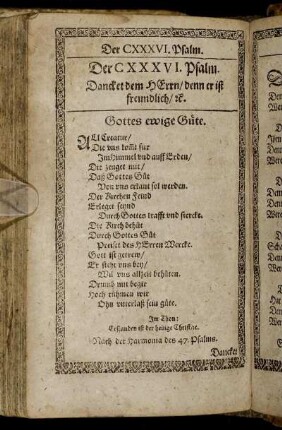 Der CXXXVI. Psalm.
Der CXXXVI. Psalm.
Dancket dem HErrn/ denn er ist
freundlich/ ꝛc.
Gottes ewige Güte.
ALl Creatur/
Die uns kompt für
Im Himmel und auff Erden/
Die zeuget nur/
Daß Gottes Güt
Von uns erkant sol werden.
Der Kirchen Feind
Erleget seynd
Durch Gottes krafft und stercke.
Die Kirch behüt
Durch Gottes Güt
Preiset des HErren Wercke.
Gott ist getrew/
Er steht uns bey/
Wil uns allzeit behüten.
Drumb mit begir
Hoch rühmen wir
Ohn unterlaß sein güte.
Im Thon:
Erstanden ist der heilge Christ/ꝛc.
Nach der Harmonia des 47. Psalms.
Dancket